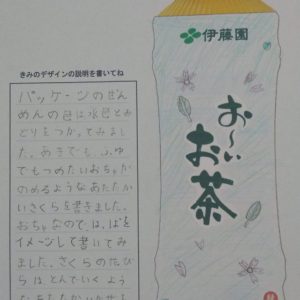 伊藤園
お〜いお茶
きみのデザインの説明を書いてね
パッケージのぜん
めんの色は水色とみ
どりをつかってみまし
た。あきでも、ふゆ
でもつめたいおちゃが
のめるようなあたたか
いさくらを書きました。
おちゃなので、はっぱを
イメージして書いてみ
ました。さくらの花び
らはとんでいくよう